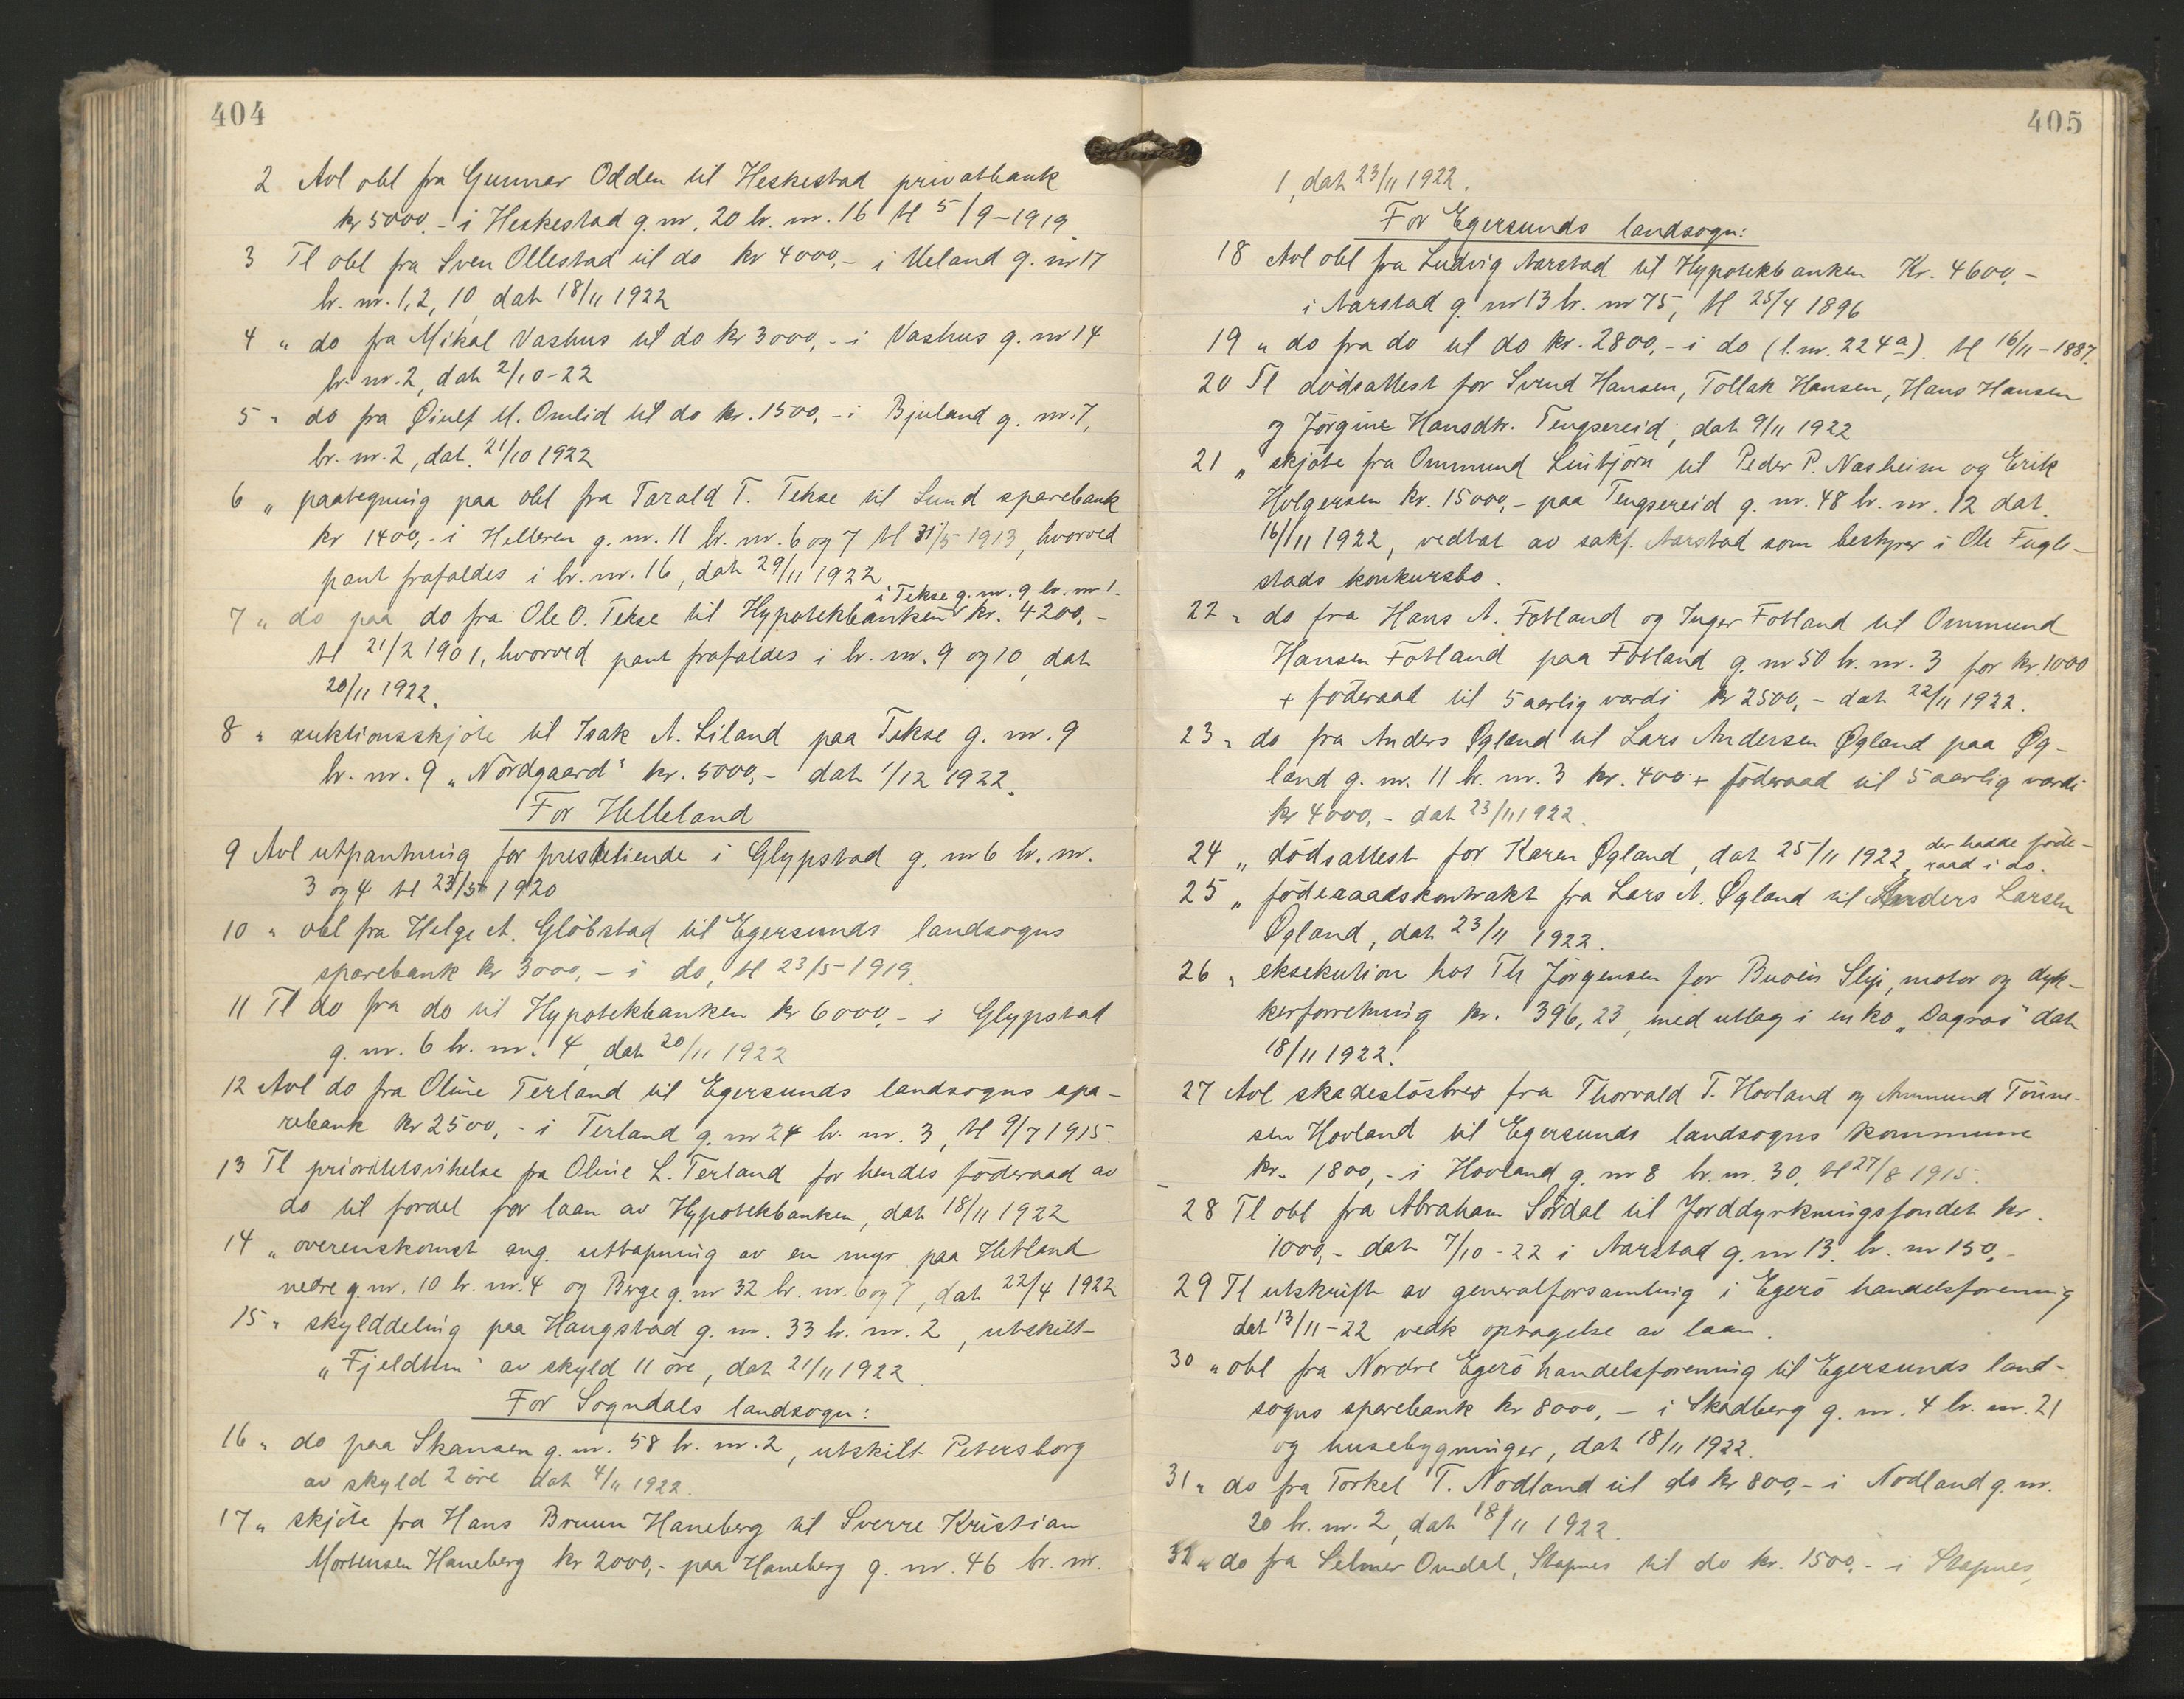 404
2 Avl obl fra Gunner Odden til Heskestad privatbank
kr 5000,- i Heskestad g. nr. 20 br. nr. 16 tl 5/9-1919.
3 Tl obl fra Sven Ollestad til do kr 4000,- i Ueland g. nr 17
br. nr. 1, 2, 10, dat 18/11 1922
4 " do fra Mikal Vashus til do kr 3000,- i Vashus g. nr 14
br. nr. 2, dat 2/10-22
5 " do fra Øiulf M. Omlid til do kr. 1500,- i Bjuland g. nr. 7,
br. nr. 2, dat. 21/10 1922
6 " paategning paa obl fra Tarald T. Tekse til Lund sparebank
kr 1400,- i Helleren g. nr. 11 br. nr. 6 og 7 tl 31/5 1913, hvorved
pant frafaldes i br. nr. 16, dat 29/11 1922
i Tekse g. nr. 9 br. nr 1.
7 " do paa do fra Ole O. Tekse til Hypotekbanken kr. 4200,-
tl 21/2 1901, hvorved pant frafaldes i br. nr. 9 og 10, dat
20/11 1922.
8 " auktionsskjøte til Isak A. Liland paa Tekse g. nr. 9
br. nr. 9 "Nordgaard" kr. 5000,- dat 1/12 1922.
For Helleland
9 Avl utpantning for prestetiende i Glypstad g. nr 6 br. nr.
3 og 4 tl 23/5 1920
10 " obl fra Helge A. Glöbstad til Egersunds landsogns
sparebank kr 3000,- i do, tl 23/5-1919.
11 Tl do fra do til Hypotekbanken kr 6000,- i Glypstad
g. nr. 6 br. nr. 4, dat 20/11 1922
12 Avl do fra Oline Terland til Egersunds landsogns spa-
rebank kr 2500,- i Terland g. nr 24 br. nr. 3, tl 9/7 1915.
13 Tl prioritetsvikelse fra Oline L. Terland for hendes föderaad av
do til fordel for laan av Hypotekbanken, dat 18/11 1922
14 " overenskomst ang. uttapning av en myr paa Hetland
nedre g. nr. 10 br. nr. 4 og Berge g. nr 32 br. nr. 6 og 7, dat 22/4 1922
15 " skylddeling paa Haugstad g. nr. 33 br. nr. 2, utskilt
"Fjeldtun" av skyld 11 öre, dat 21/11 1922.
For Sogndals landsogn:
16 " do paa Skansen g. nr. 58 br. nr. 2, utskilt Petersborg
av skyld 2 öre dat 4/11 1922.
17 " skjöte fra Hans Bruun Haneberg til Sverre Kristian
Mortensen Haneberg kr 2000,- paa Haneberg g. nr. 46 br. nr.
405
1, dat 23/11 1922.
For Egersunds landsogn:
18 Avl obl fra Ludvig Aarstad til Hypotekbanken Kr. 4600,-
i Aarstad g. nr 13 br. nr 75, tl 25/4 1896
19 " do fra do til do kr. 2800,- i do (l. nr. 224a). tl 16/11-1887.
20 Tl dødsattest for Svend Hansen, Tollak Hansen, Hans Hansen
og Jörgine Hansdtr. Tengsereid, dat 9/11 1922
21 " skjöte fra Ommund Luibjörn til Peder P. Nasheim og Erik
Holgersen kr. 15000,- paa Tengsereid g. nr. 48 br. nr. 12 dat.
16/11 1922, vedtat av sakf. Aarstad som bestyrer i Ole Fugle-
stads konkursbo.
22 " do fra Hans A. Fotland og Inger Fotland til Ommund
Hansen Fotland paa Fotland g. nr 50 br. nr. 3 for kr. 1000
+ föderaad til 5 aarlig værdi kr 2500,- dat 22/11 1922.
23 " do fra Anders Øgland til Lars Andersen Øgland paa Øg-
land g. nr. 11 br. nr. 3 kr. 400 + föderaad til 5 aarlig værdi
kr 4000,- dat 23/11 1922.
24 " dödsattest for Karen Øgland, dat 25/11 1922, der hadde föde-
raad i do.
25 " födeaaadskontrakt fra Lars A. Øgland til Anders Larsen
Øgland, dat 23/11 1922.
26 " eksekution hos Th Jörgensen for Buöens Slip, motor og dyk-
kerforretning kr. 396,23, med utlæg i en ko "Dagros" dat
18/11 1922.
27 Avl skadeslösbrev fra Thorvald T. Hovland og Ammund Tönne-
sen Hovland til Egersunds landsogns kommune
kr. 1800,- i Hovland g. nr 8 br. nr. 30, tl 27/8 1915.
28 Tl obl fra Abraham Sördal til Jorddyrkningsfondet kr.
1000,- dat 7/10-22 i Aarstad g. nr 13. br. nr 150.-
29 Tl utskrift av generalforsamling i Egerö handelsforening
dat 13/11-22 vedk optagelse av laan.
30 " obl fra Nordre Egerö handelsforening til Egersunds land-
sogns sparebank kr 8000,- i Skadberg g. nr. 4 br. nr. 21
og husebygninger, dat 18/11 1922.
31 " do fra Torkel T. Nodland til do kr 800,- i Nodland g. nr.
20 br. nr. 2, dat 18/11 1922.
32 " do fra Selmer Omdal, Stapnes til do kr. 1500,- i Stapnes,